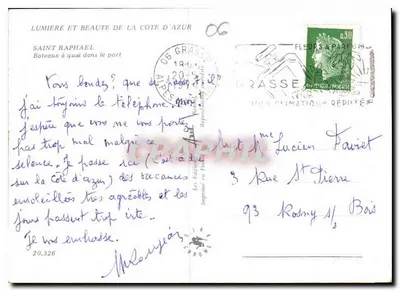 LUMIERE ET BEAUTE DE LA COTE D'AZUR
06
SAINT RAPHAEL
Bateaux à quai dans le port
06 GRASSE
0,30
FLEURS & PARFUMS
GRASSE
Vous boudez? que se passe
j'ai toujours le téléphone, mon
j'espère que vous ne vous portez
pas trop mal malgré ce
silence. Je passe ici (c'est à d
sur la Côte d'azur) des vacances
ensoleillées très agréables et les
jours passent trop vite.
Je vous embrasse.
Lucien
3 Rue St Pierre
93 Rosny s/s Bois
20.326